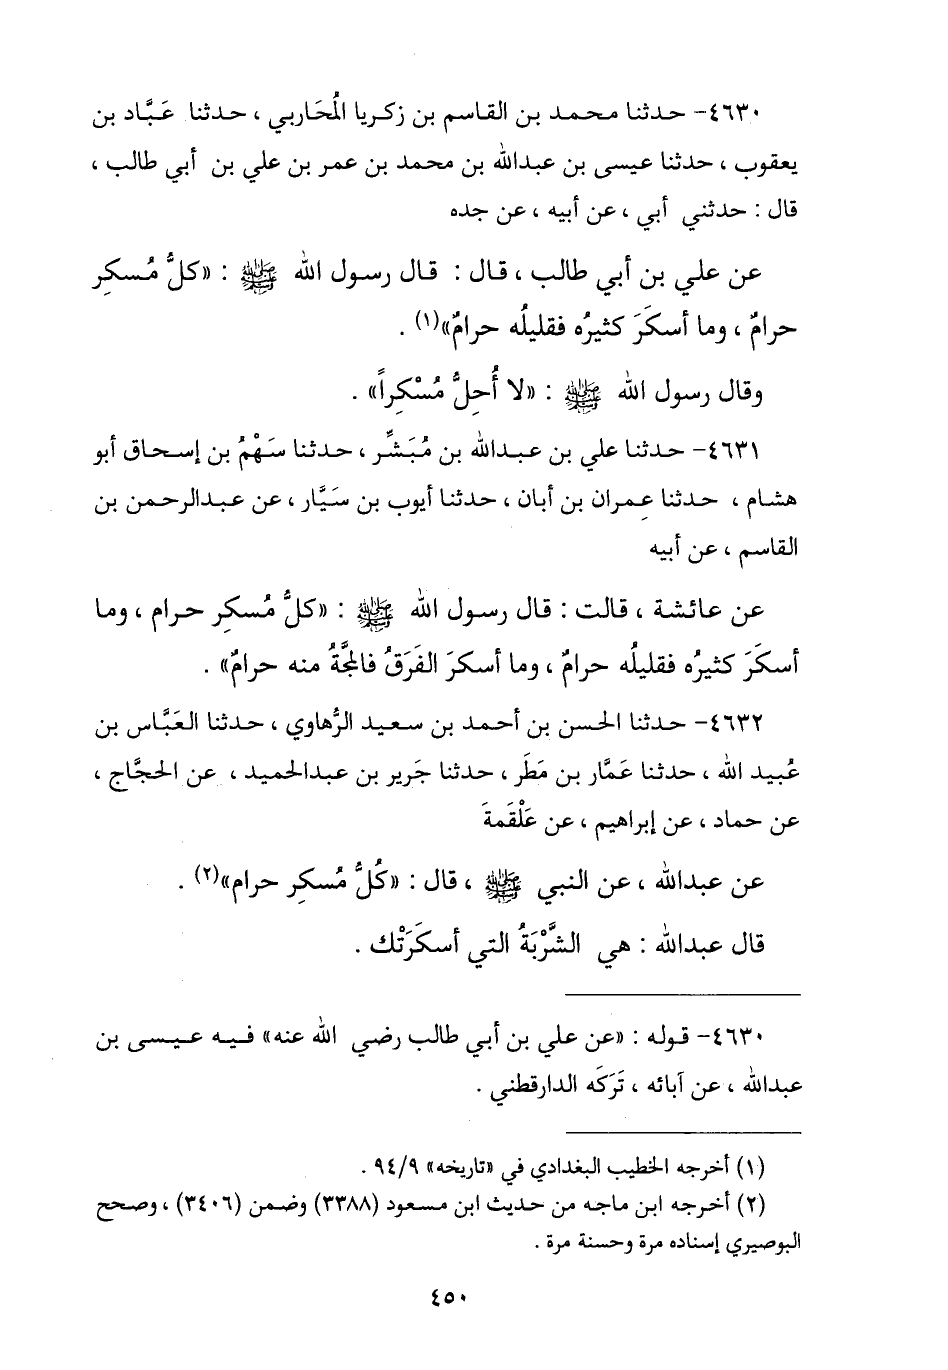 ٤٦٣٠- حدثنا محمد بن القاسم بن زكريا المُحَاربي ، حدثنا عَبَّاد بن
يعقوب ، حدثنا عيسى بن عبدالله بن محمد بن عمر بن علي بن أبي طالب ،
قال : حدثني أبي ، عن أبيه ، عن جده
عن علي بن أبي طالب ، قال : قال رسول الله ﷺ : «كلُّ مُسكِر
حرامٌ ، وما أسكَرَ كثيرُه فقليلُه حرامٌ»(١) .
وقال رسول الله ﷺ : «لا أُحِلُّ مُسْكِراً» .
٤٦٣١- حدثنا علي بن عبدالله بن مُبَشِّر ، حدثنا سَهْمُ بن إسحاق أبو
هشام ، حدثنا عِمران بن أبان ، حدثنا أيوب بن سَيَّار ، عن عبدالرحمن بن
القاسم ، عن أبيه
عن عائشة ، قالت : قال رسول الله ﷺ : «كلُّ مُسكِر حرام ، وما
أسكَرَ كثيرُه فقليلُه حرامٌ ، وما أسكرَ الفَرَقُ فالمجَّةُ منه حرامٌ» .
٤٦٣٢- حدثنا الحسن بن أحمد بن سعيد الرُّهاوي ، حدثنا العَبَّاس بن
عُبيد الله ، حدثنا عَمَّار بن مَطَر ، حدثنا جَرير بن عبدالحميد ، عن الحجَّاج ،
عن حماد ، عن إبراهيم ، عن عَلْقَمةَ
عن عبدالله ، عن النبي ﷺ ، قال : «كُلُّ مُسكِر حرام»(٢) .
قال عبدالله : هي الشَّرْبَةُ التي أسكَرَتْك .
٤٦٣٠- قوله : «عن علي بن أبي طالب رضي الله عنه» فيه عيسى بن
عبدالله ، عن آبائه ، تَرَكَه الدارقطني .
(١) أخرجه الخطيب البغدادي في «تاريخه» ٩٤/٩ .
(٢) أخرجه ابن ماجه من حديث ابن مسعود (٣٣٨٨) وضمن (٣٤٠٦) ، وصحح
البوصيري إسناده مرة وحسنة مرة .
٤٥٠